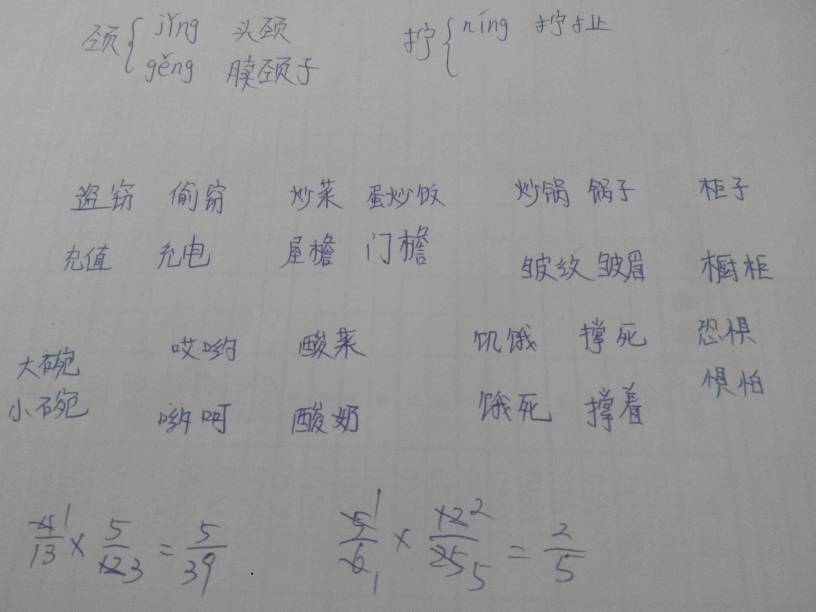 颈 { jǐng 头颈 拧 { níng 拧扯
gěng 脖颈子
盗窃 偷窃 炒菜 蛋炒饭 炒锅 锅子 柜子
充值 充电 屋檐 门檐 皱纹 皱眉 橱柜
大碗 哎哟 酸菜 饥饿 撑死 恐惧
小碗 哟呵 酸奶 饿死 撑着 惧怕
4/13 1 × 5/12 3 = 5/39 5/6 1 1 × 12/25 2 5 = 2/5